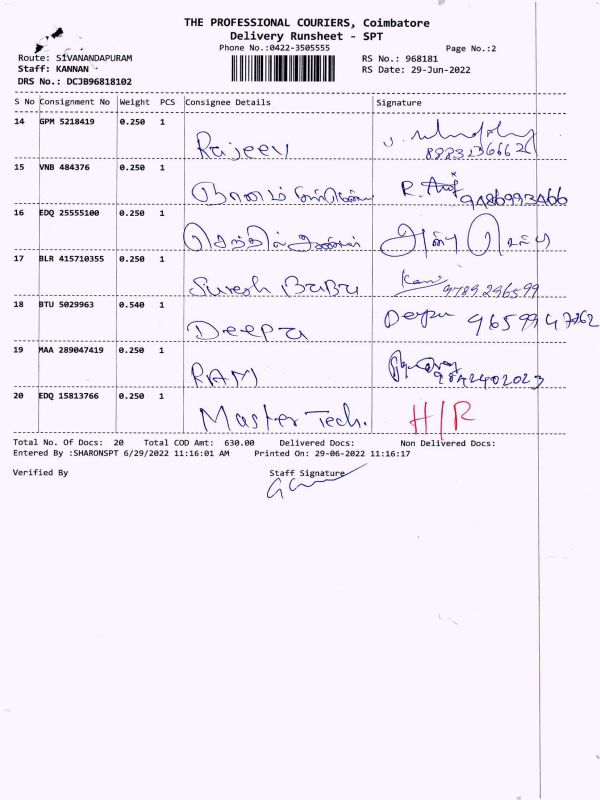 THE PROFESSIONAL COURIERS, Coimbatore
Delivery Runsheet - SPT
Phone No.:0422-3505555
Page No.:2
Route: SIVANANDAPURAM
RS No.: 968181
Staff: KANNAN
RS Date: 29-Jun-2022
DRS No.: DCJB96818102
S No Consignment No Weight PCS Consignee Details Signature
14 GPM 5218419 0.250 1
Rajeev
15 VNB 484376 0.250 1
R.
16 EDQ 25555100 0.250 1
செந்தில்
17 BLR 415710355 0.250 1
Suresh Babu 9789296599
18 BTU 5029963 0.540 1
Deepa Deepa 9659947762
19 MAA 289047419 0.250 1
RAM 9842402023
20 EDQ 15813766 0.250 1
Master Tech. H/R
Total No. Of Docs: 20 Total COD Amt: 630.00 Delivered Docs: Non Delivered Docs:
Entered By :SHARONSPT 6/29/2022 11:16:01 AM Printed On: 29-06-2022 11:16:17
Verified By Staff Signature